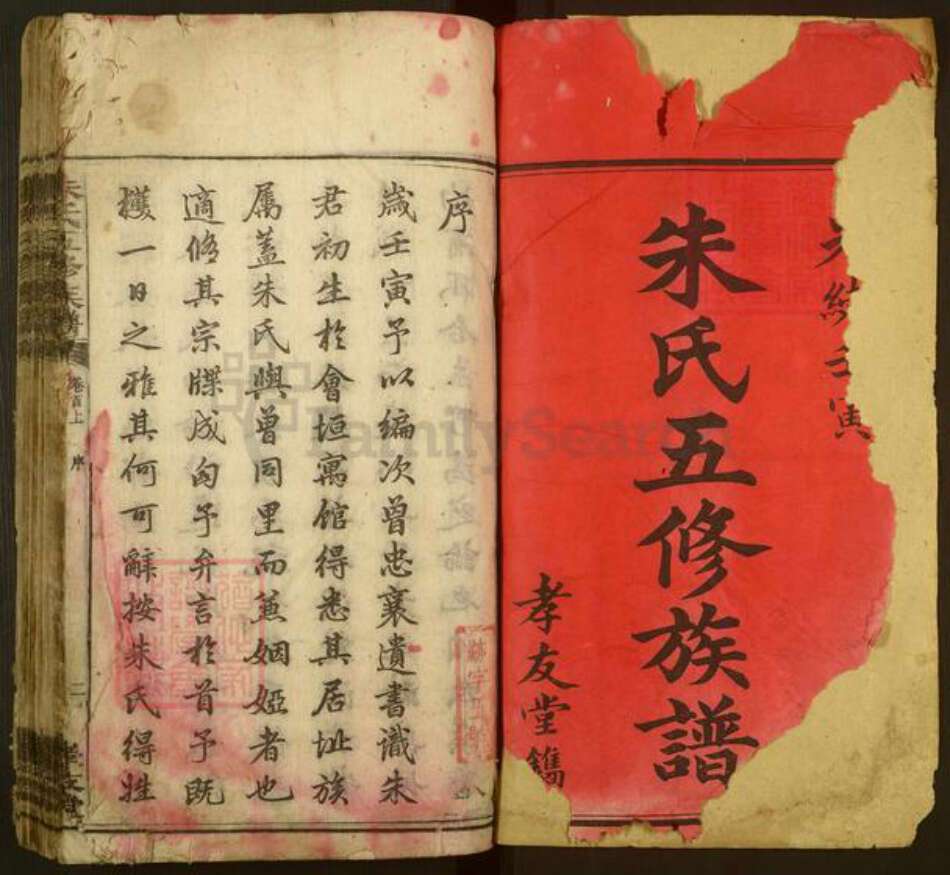 光緒壬寅
朱氏五修族譜
孝友堂鐫
序
歲壬寅予以編次曾忠襄遺書識朱
君初生於會垣寓館得悉其居址族
屬蓋朱氏與曾同里而兼姻婭者也
適修其宗牒成匄予弁言於首予既
獲一日之雅其何可辭按朱氏得姓
朱氏五修族譜
卷首上
序
二
孝友堂
FamilySearch